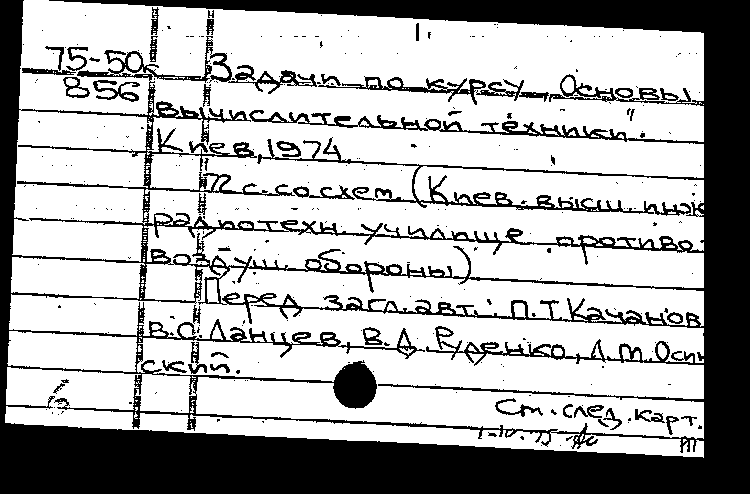 1.
75-50
856
Задачи по курсу „Основы
вычислительной техники".
Киев, 1974
72 с. со схем. (Киев. высш. инж
радиотехн. училище противо-
воздуш. обороны)
Перед загл. авт.: П.Т. Качанов
В.С. Ланцев, В.Д. Руденко, А.М. Осин
ский.
6
См. след. карт.